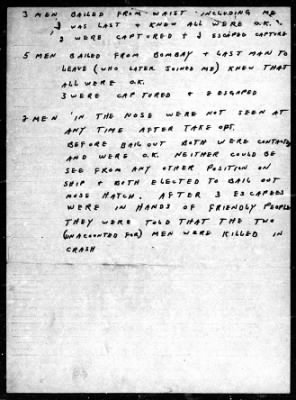 3 MEN BAILED FROM WAIST INCLUDING ME
I WAS LAST + KNEW ALL WERE O.K.
2 WERE CAPTURED + 2 ESCAPED CAPTURE
5 MEN BAILED FROM BOMBAY + LAST MAN TO
LEAVE (WHO LATER JOINED ME) KNEW THAT
ALL WERE O.K.
3 WERE CAPTURED + 2 ESCAPED
2 MEN IN THE NOSE WERE NOT SEEN AT
ANY TIME AFTER TAKE OFF.
BEFORE BAIL OUT BOTH WERE CONTACTED
AND WERE O.K. NEITHER COULD BE
SEE FROM ANY OTHER POSITION ON
SHIP + BOTH ELECTED TO BAIL OUT
NOSE HATCH. AFTER 3 ESCAPEES
WERE IN HANDS OF FRIENDLY PEOPLE
THEY WERE TOLD THAT THE TWO
(UNACOUNTED FOR) MEN WERE KILLED IN
CRASH